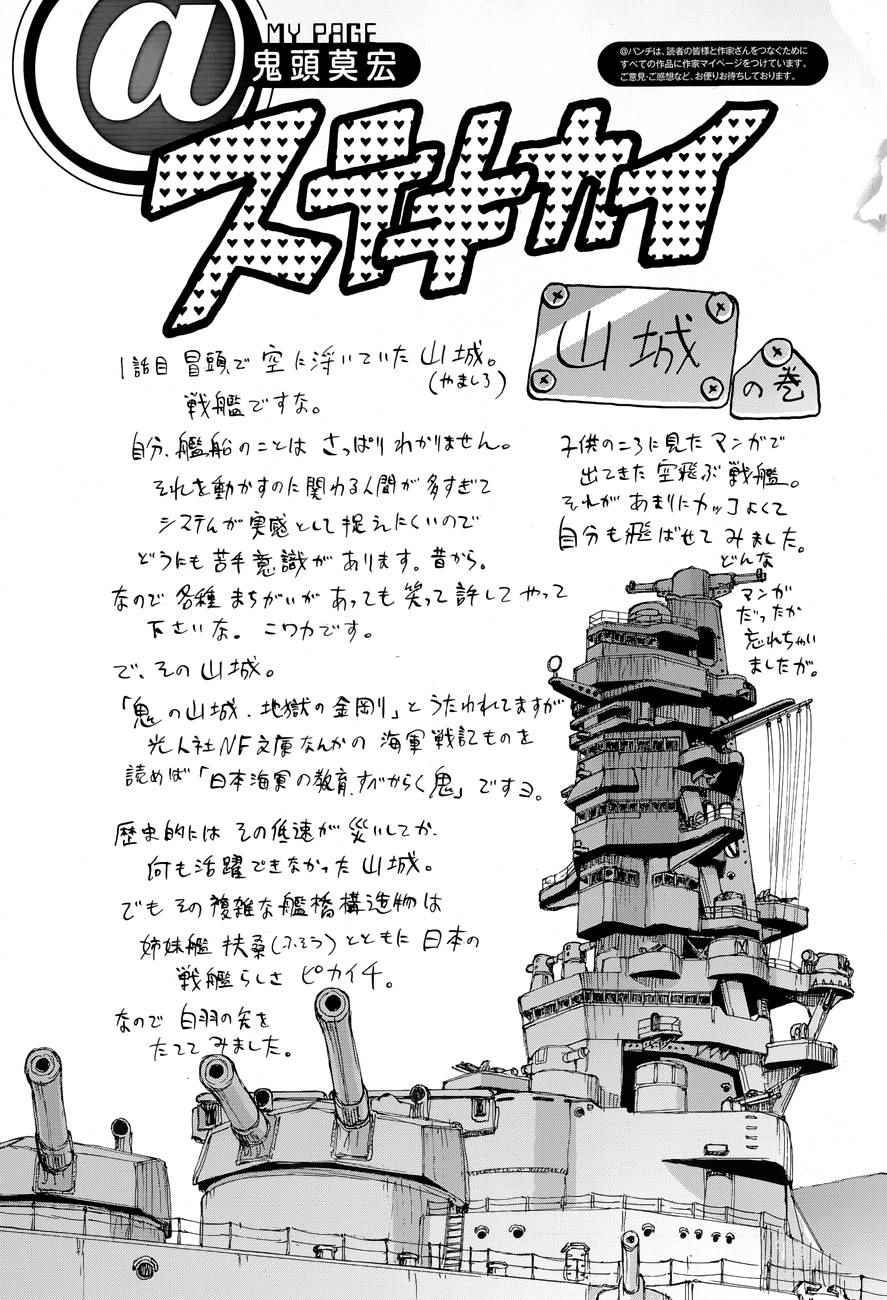 @
MY PAGE
鬼頭莫宏
@バンチは、読者の皆様と作家さんをつなぐために
すべての作品に作家マイページをつけています。
ご意見・ご感想など、お便りお待ちしております。
ステキカイ
山城
の巻
1話目 冒頭で 空に浮いていた 山城。
(やましろ)
戦艦ですな。
自分、艦船のことは さっぱり わかりません。
それを動かすのに関わる人間が多すぎて
システムが実感として捉えにくいので
どうにも苦手意識があります。昔から。
なので 各種 まちがいが あっても 笑って許してやって
下さいな。ニワカです。
で、その山城。
「鬼の山城、地獄の金剛」とうたわれてますが
光人社NF文庫なんかの 海軍戦記ものを
読めば「日本海軍の教育、すべからく鬼」ですヨ。
歴史的には その低速が 災いしてか、
何も活躍できなかった 山城。
でも その複雑な艦橋構造物は
姉妹艦 扶桑(ふそう)とともに 日本の
戦艦らしさ ピカイチ。
なので 白羽の矢を
たててみました。
子供のころに見た マンガで
出てきた 空飛ぶ 戦艦。
それが あまりにカッコよくて
自分も飛ばせて みました。
どんな
マンガ
だったか
忘れちゃい
ましたが。